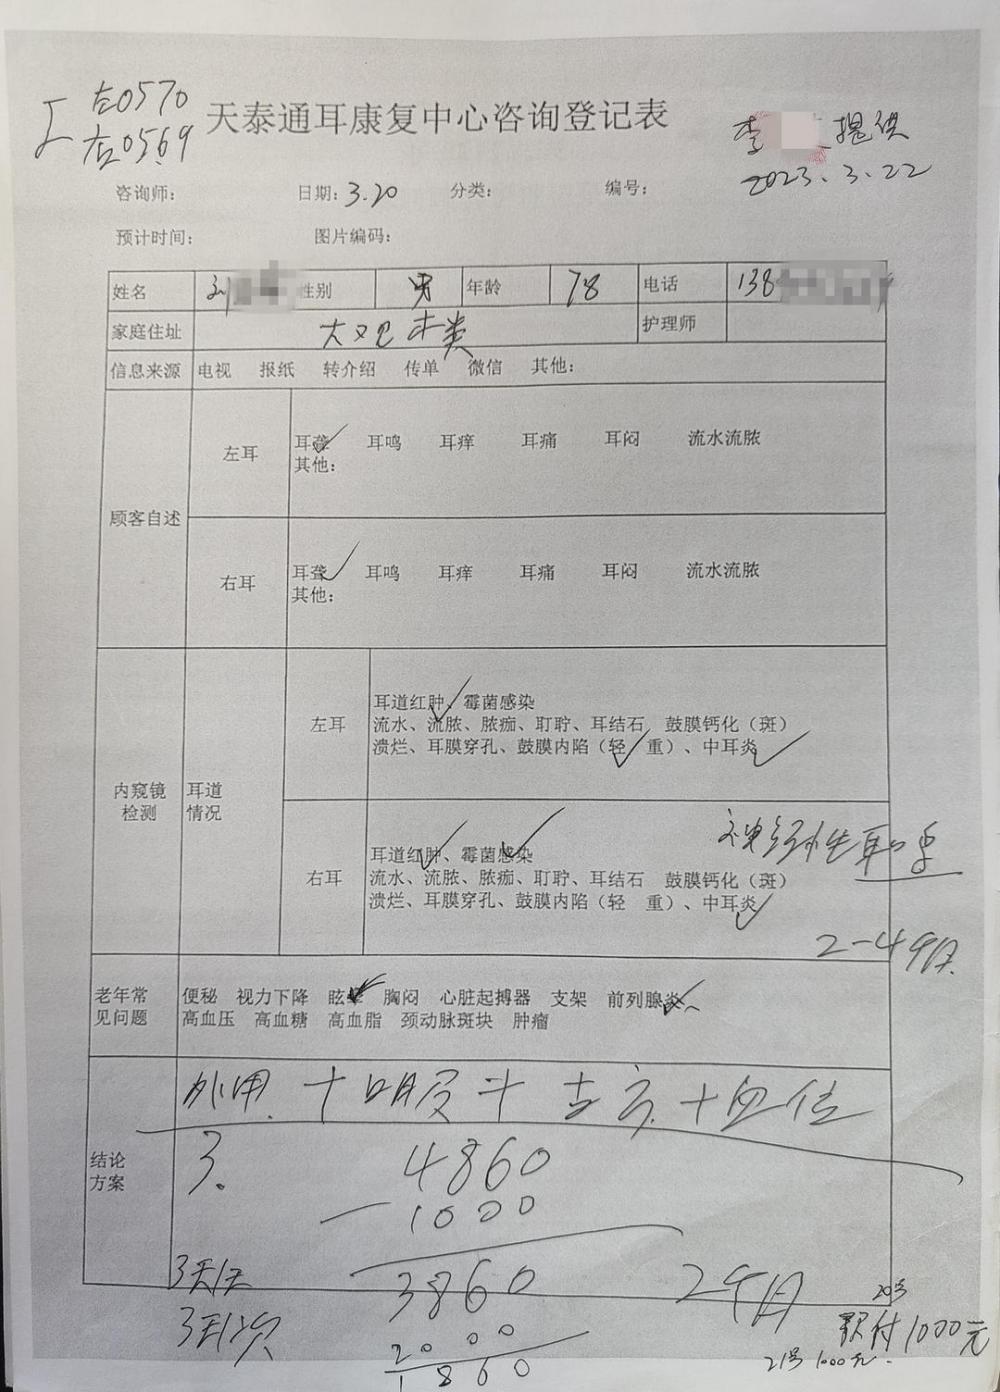 左0570
天泰通耳康复中心咨询登记表
右0569
李 提供
2023.3.22
咨询师: 日期: 3.20 分类: 编号:
预计时间: 图片编码:
姓名 刘 性别 男 年龄 78 电话 138
家庭住址 护理师
信息来源 电视 报纸 转介绍 传单 微信 其他:
顾客自述
左耳
耳聋 耳鸣 耳痒 耳痛 耳闷 流水流脓
其他:
右耳
耳聋 耳鸣 耳痒 耳痛 耳闷 流水流脓
其他:
内窥镜
检测
耳道
情况
左耳
耳道红肿、霉菌感染
流水、流脓、脓痂、耵聍、耳结石 鼓膜钙化（斑）
溃烂、耳膜穿孔、鼓膜内陷（轻 重）、中耳炎
右耳
耳道红肿、霉菌感染
流水、流脓、脓痂、耵聍、耳结石 鼓膜钙化（斑）
溃烂、耳膜穿孔、鼓膜内陷（轻 重）、中耳炎
神经性耳
2-4个月
老年常
见问题
便秘 视力下降 眩晕 胸闷 心脏起搏器 支架 前列腺炎
高血压 高血糖 高血脂 颈动脉斑块 肿瘤
结论
方案
外用 +
3.
4860
1000
3天1次
3860
2个月
20号
3天1次
2000
预付1000元
1860
21号1000元.